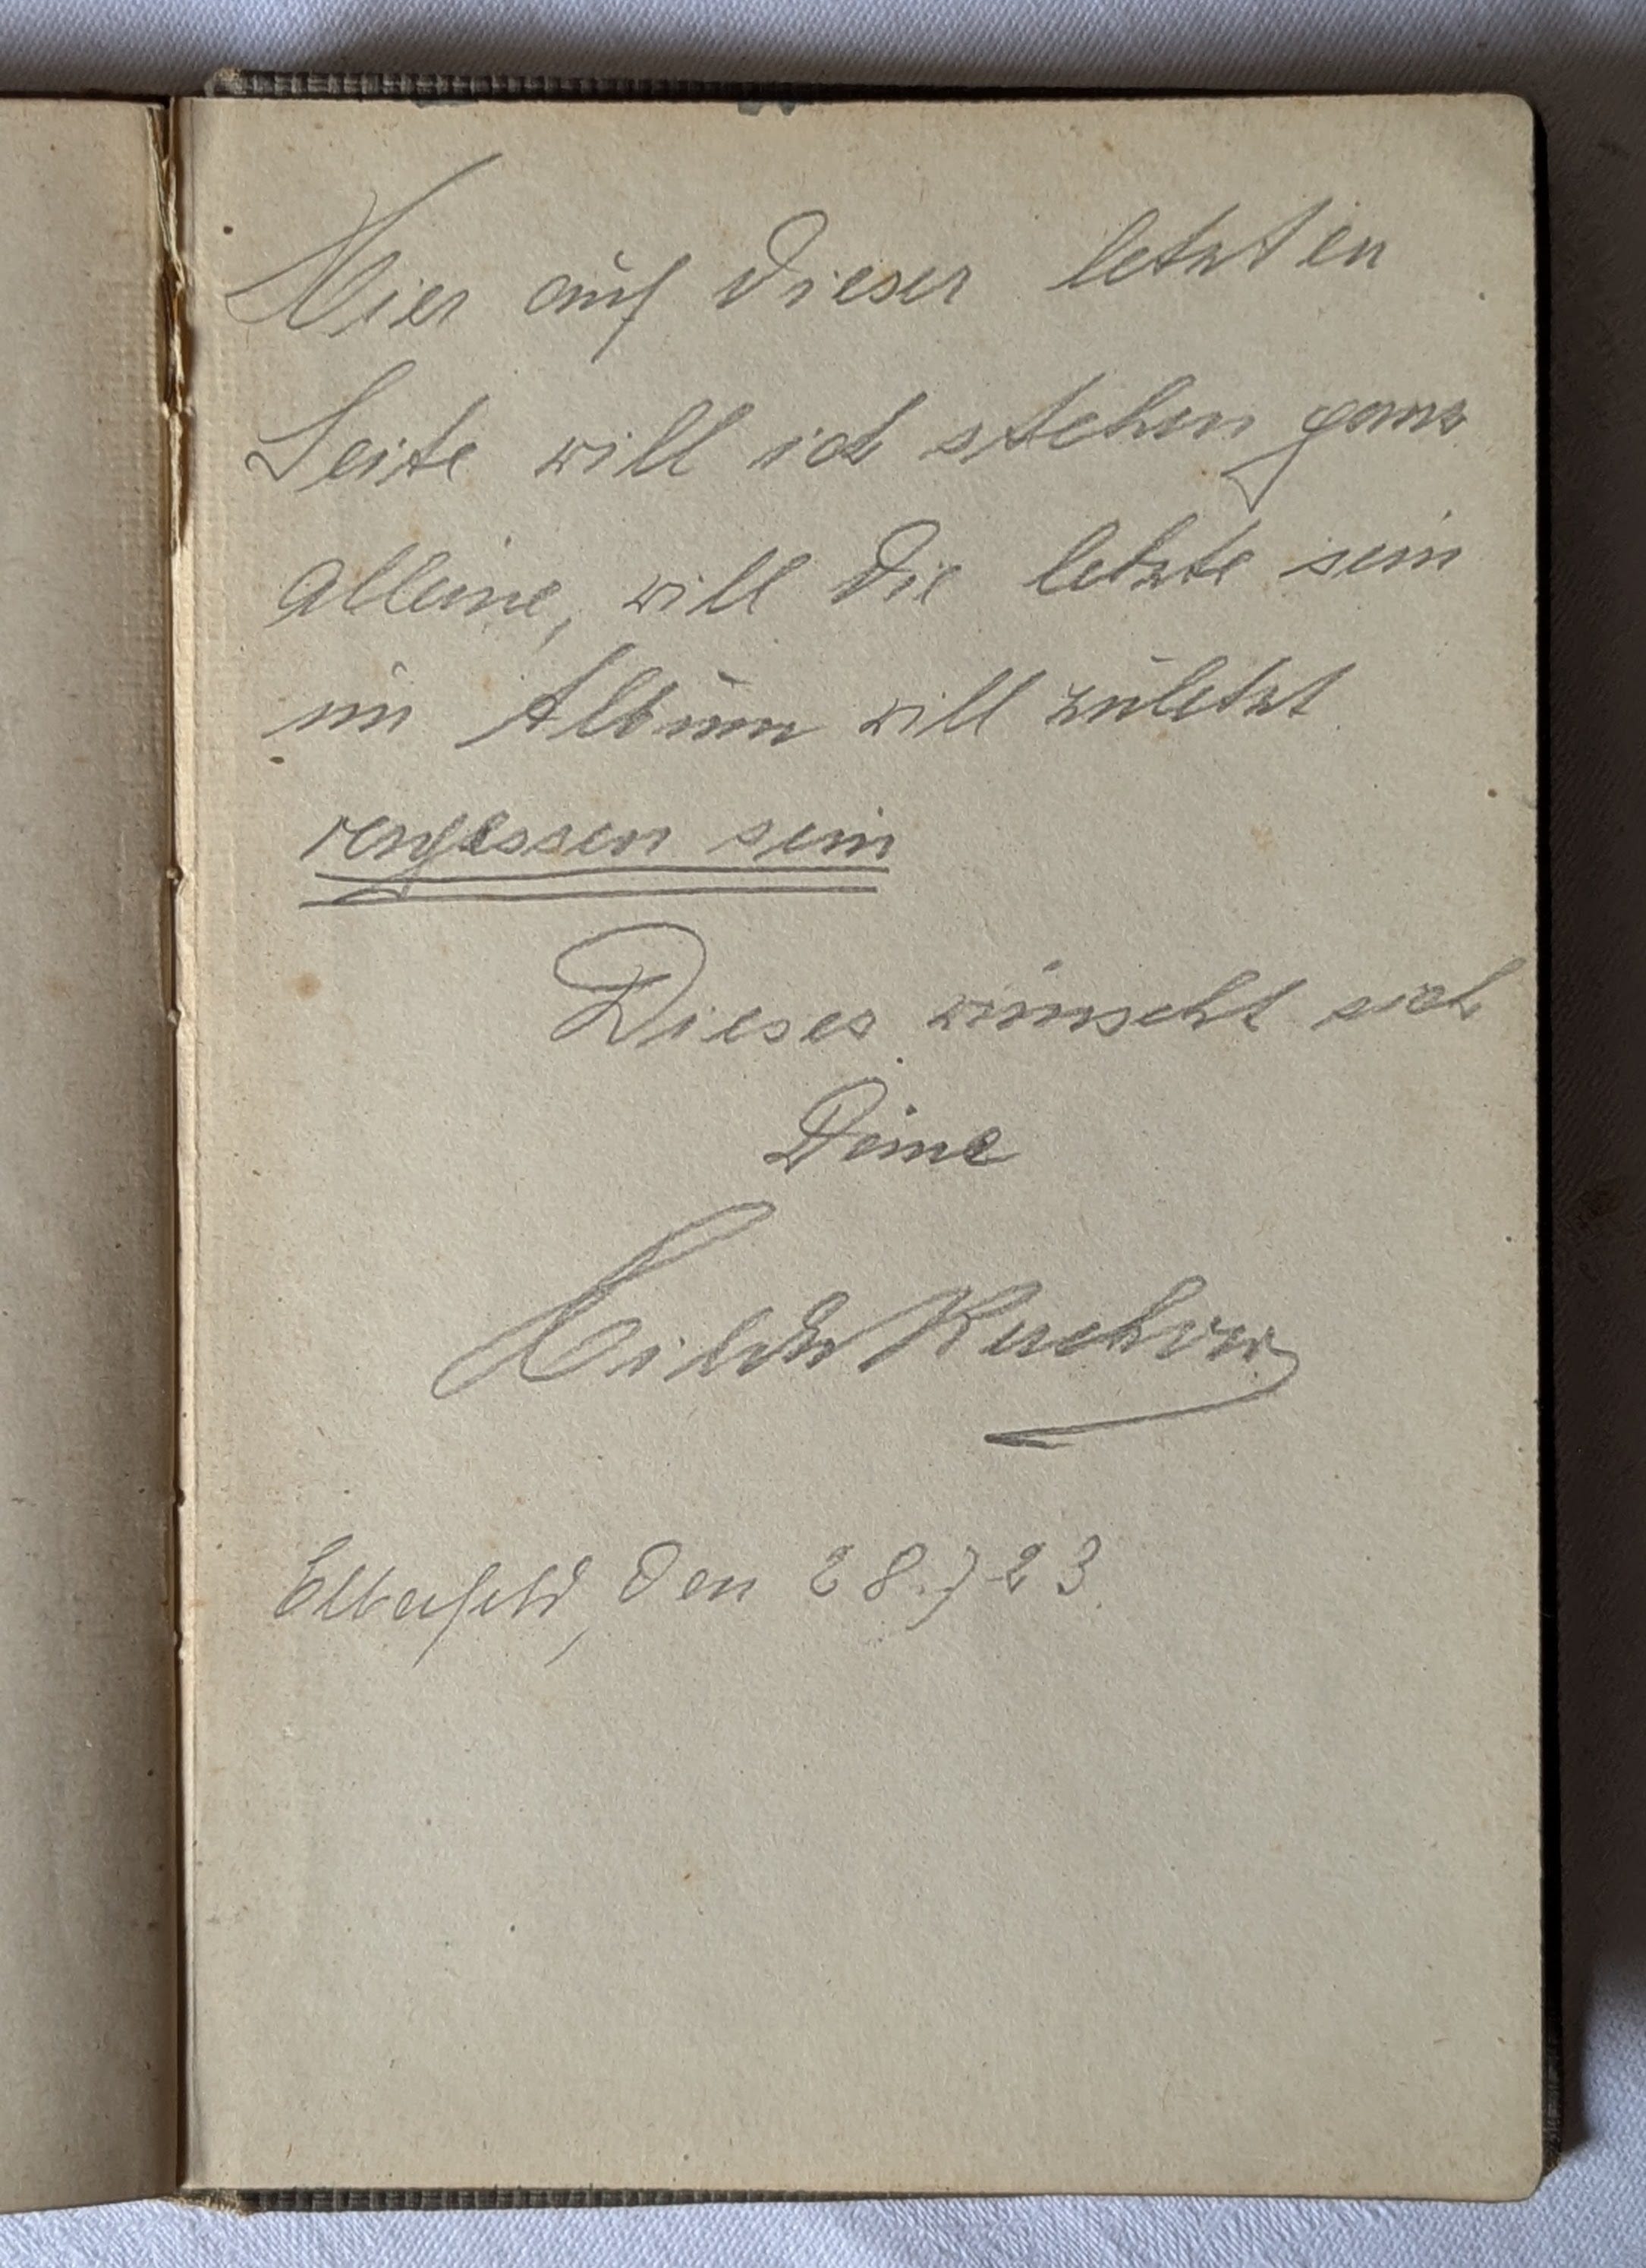 Hier auf dieser letzten
Seite will ich stehen ganz
alleine, will die letzte sein
im Album will zuletzt
vergessen sein
Dieses wünscht sich
Deine
Hilde
Elberfeld, den 28.7 23.